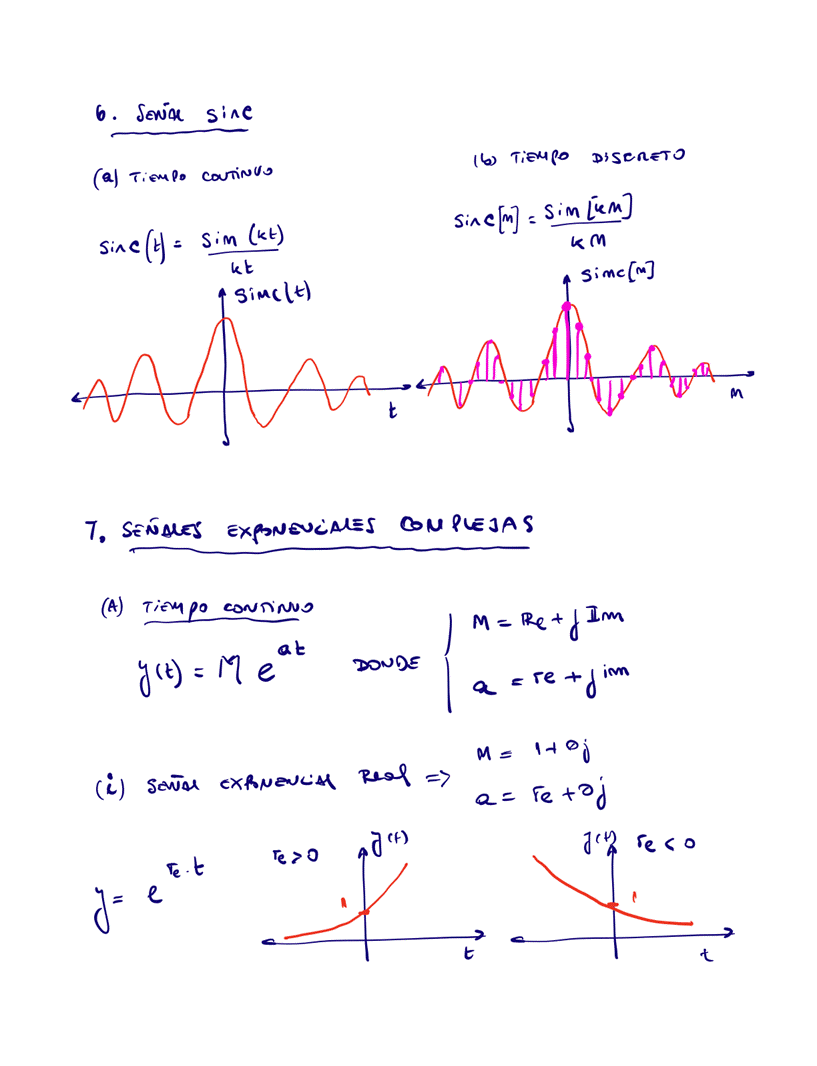 6. SEÑAL sinc
(a) TIEMPO CONTINUO
sinc(t) = sin (kt) / kt
sinc(t)
t
(b) TIEMPO DISCRETO
sinc[n] = sin [kn] / kn
sinc[n]
n
7. SEÑALES EXPONENCIALES COMPLEJAS
(A) TIEMPO CONTINUO
y(t) = M e^at DONDE
M = Re + j Im
a = re + j im
(i) SEÑAL EXPONENCIAL Real =>
M = 1 + 0j
a = re + 0j
y = e^re·t
re > 0
y(t)
1
t
y(t)
re < 0
1
t